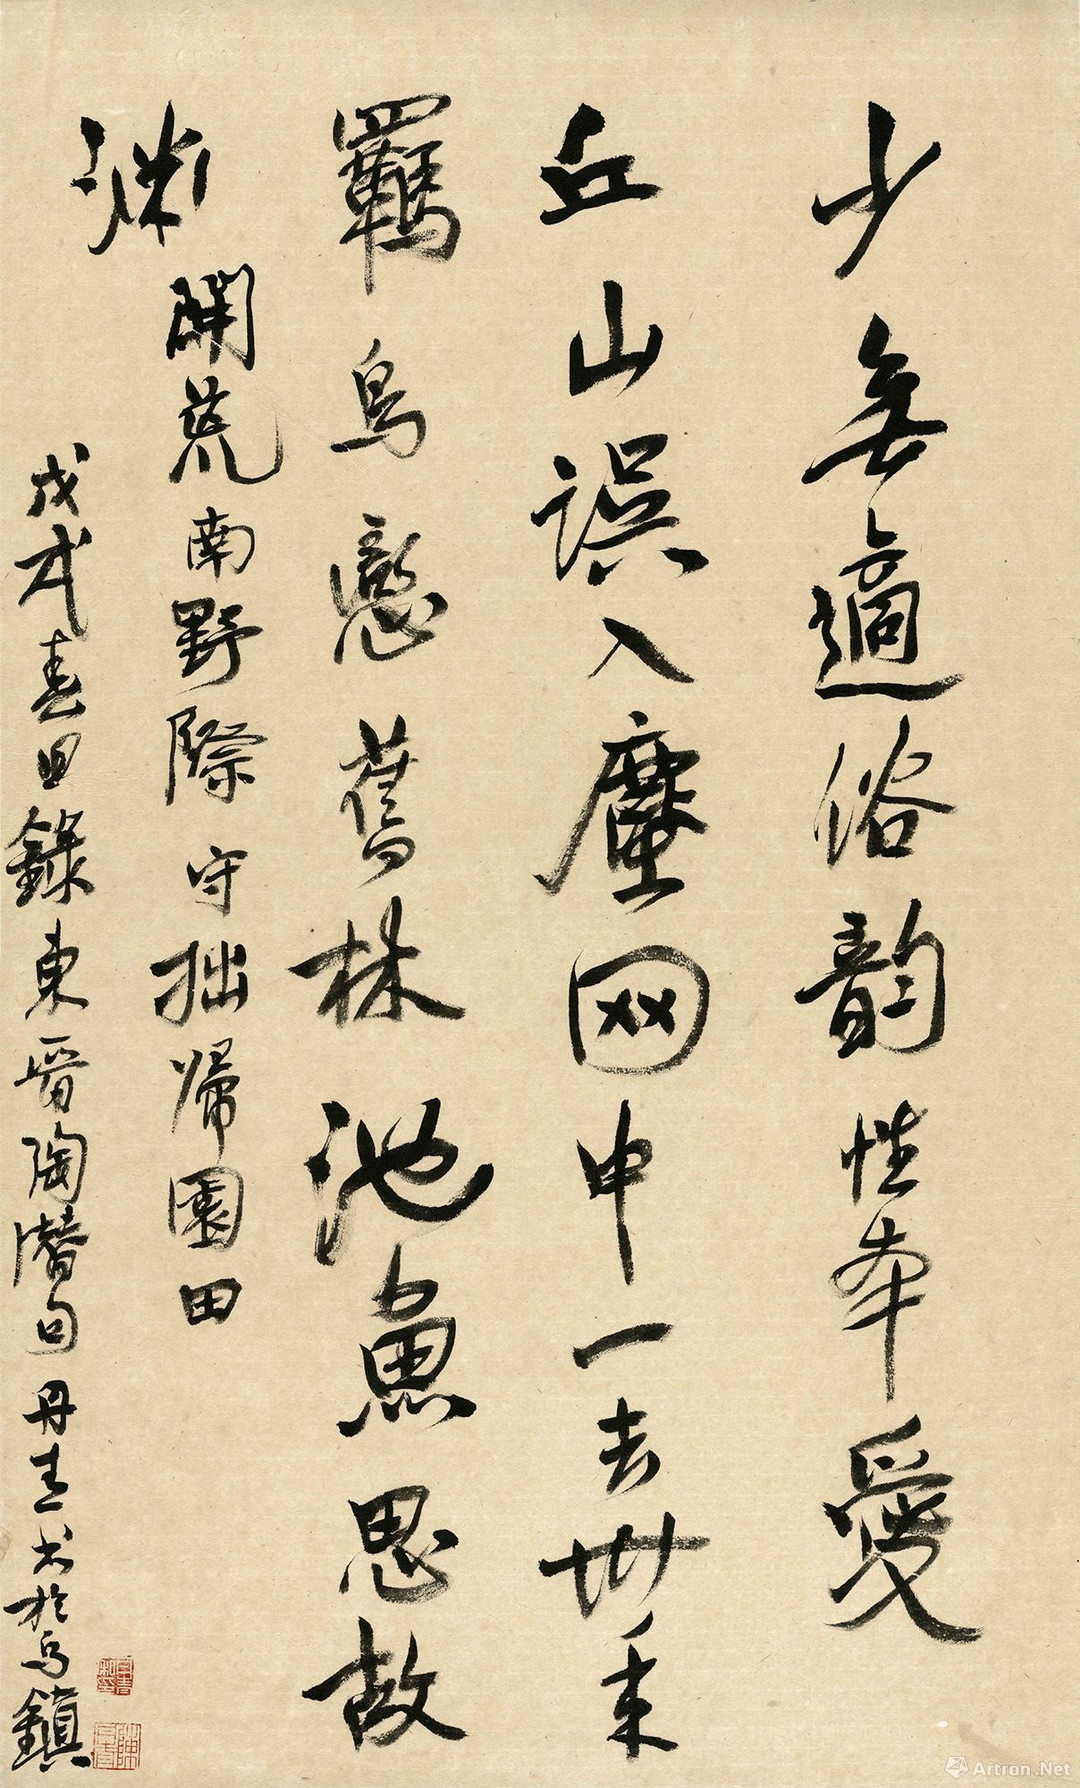 少無適俗韵性本愛
丘山誤入塵网中一去卅年
羈鳥戀舊林池魚思故
渊開荒南野際守拙歸園田
戊戌春日錄東晉陶潛句丹青書於烏鎮
Artron.Net